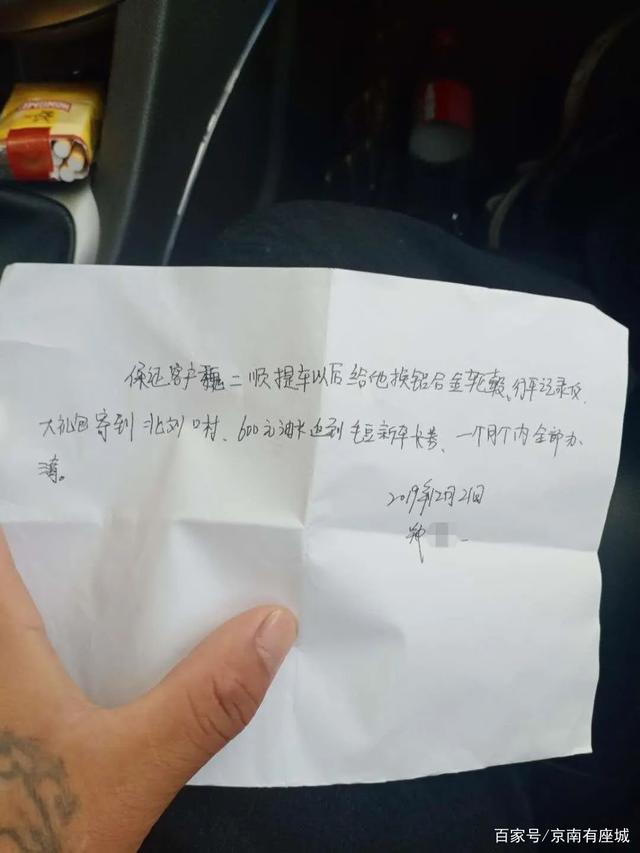 保证客户二顺提车以后给他换铝合金轮毂、行车记录仪
大礼包寄到北刘口村、600元油卡返到毛豆新车卡券、一个月内全部办
清。
2019年12月21日
郑
百家号/京南有座城